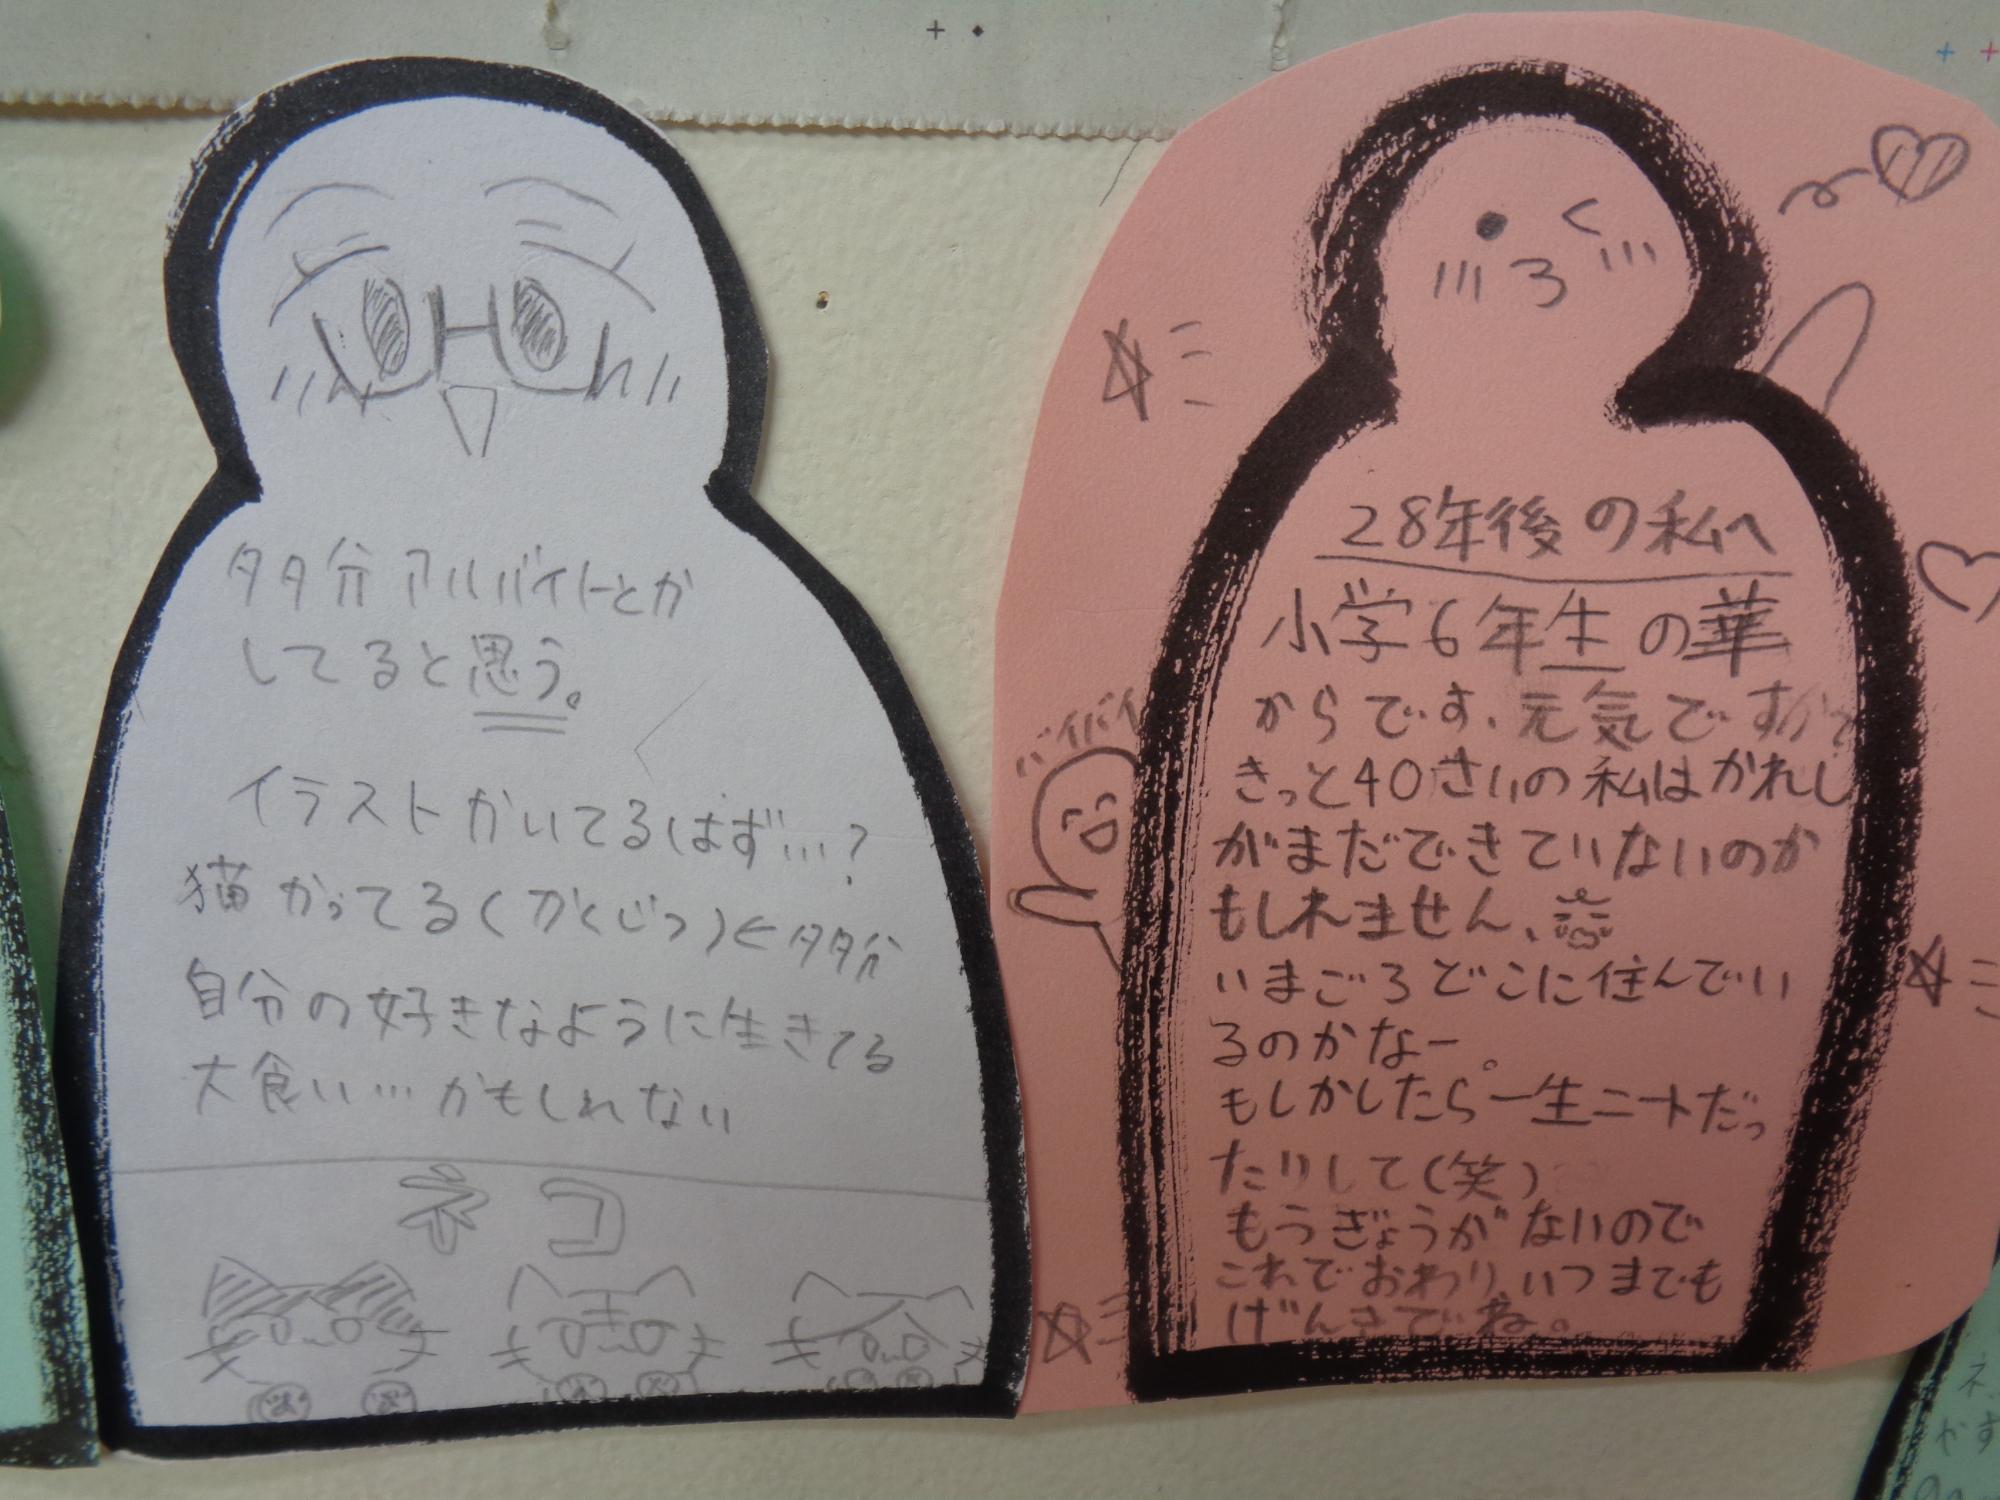 多分アルバイトとか
してると思う。
イラストかいてるはず…?
猫かってる(かくじつ)←多分
自分の好きなように生きてる
大食い…かもしれない
ネコ
28年後の私へ
小学6年生の華
からです。元気ですか?
きっと40さいの私はかれし
がまだできていないのか
もしれません、
いまごろどこに住んでい
るのかなー。
もしかしたら一生ニートだっ
たりして(笑)
もうぎょうがないので
これでおわり、いつまでも
げんきでね。
バイバイ